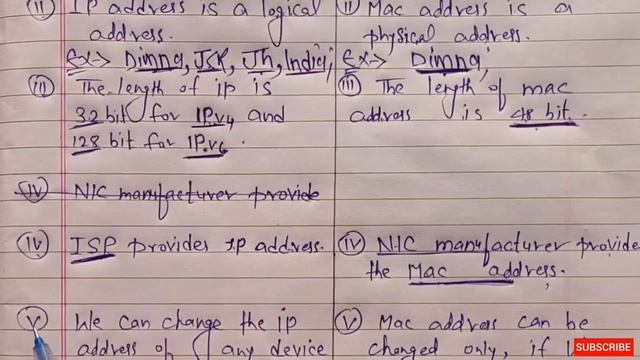 (ii) IP address is a logical
address.
Ex-> Dimna, JSR, Jh, India,
(iii) The length of ip is
32 bit for IPv4 and
128 bit for IPv6.
(iv) NIC manufacturer provide
(iv) ISP provides IP address.
(v) We can change the ip
address of any device
(ii) Mac address is a
physical address.
Ex-> Dimna,
(iii) The length of mac
address is 48 bit.
(iv) NIC manufacturer provide
the Mac address.
(v) Mac address can be
changed only, if
SUBSCRIBE